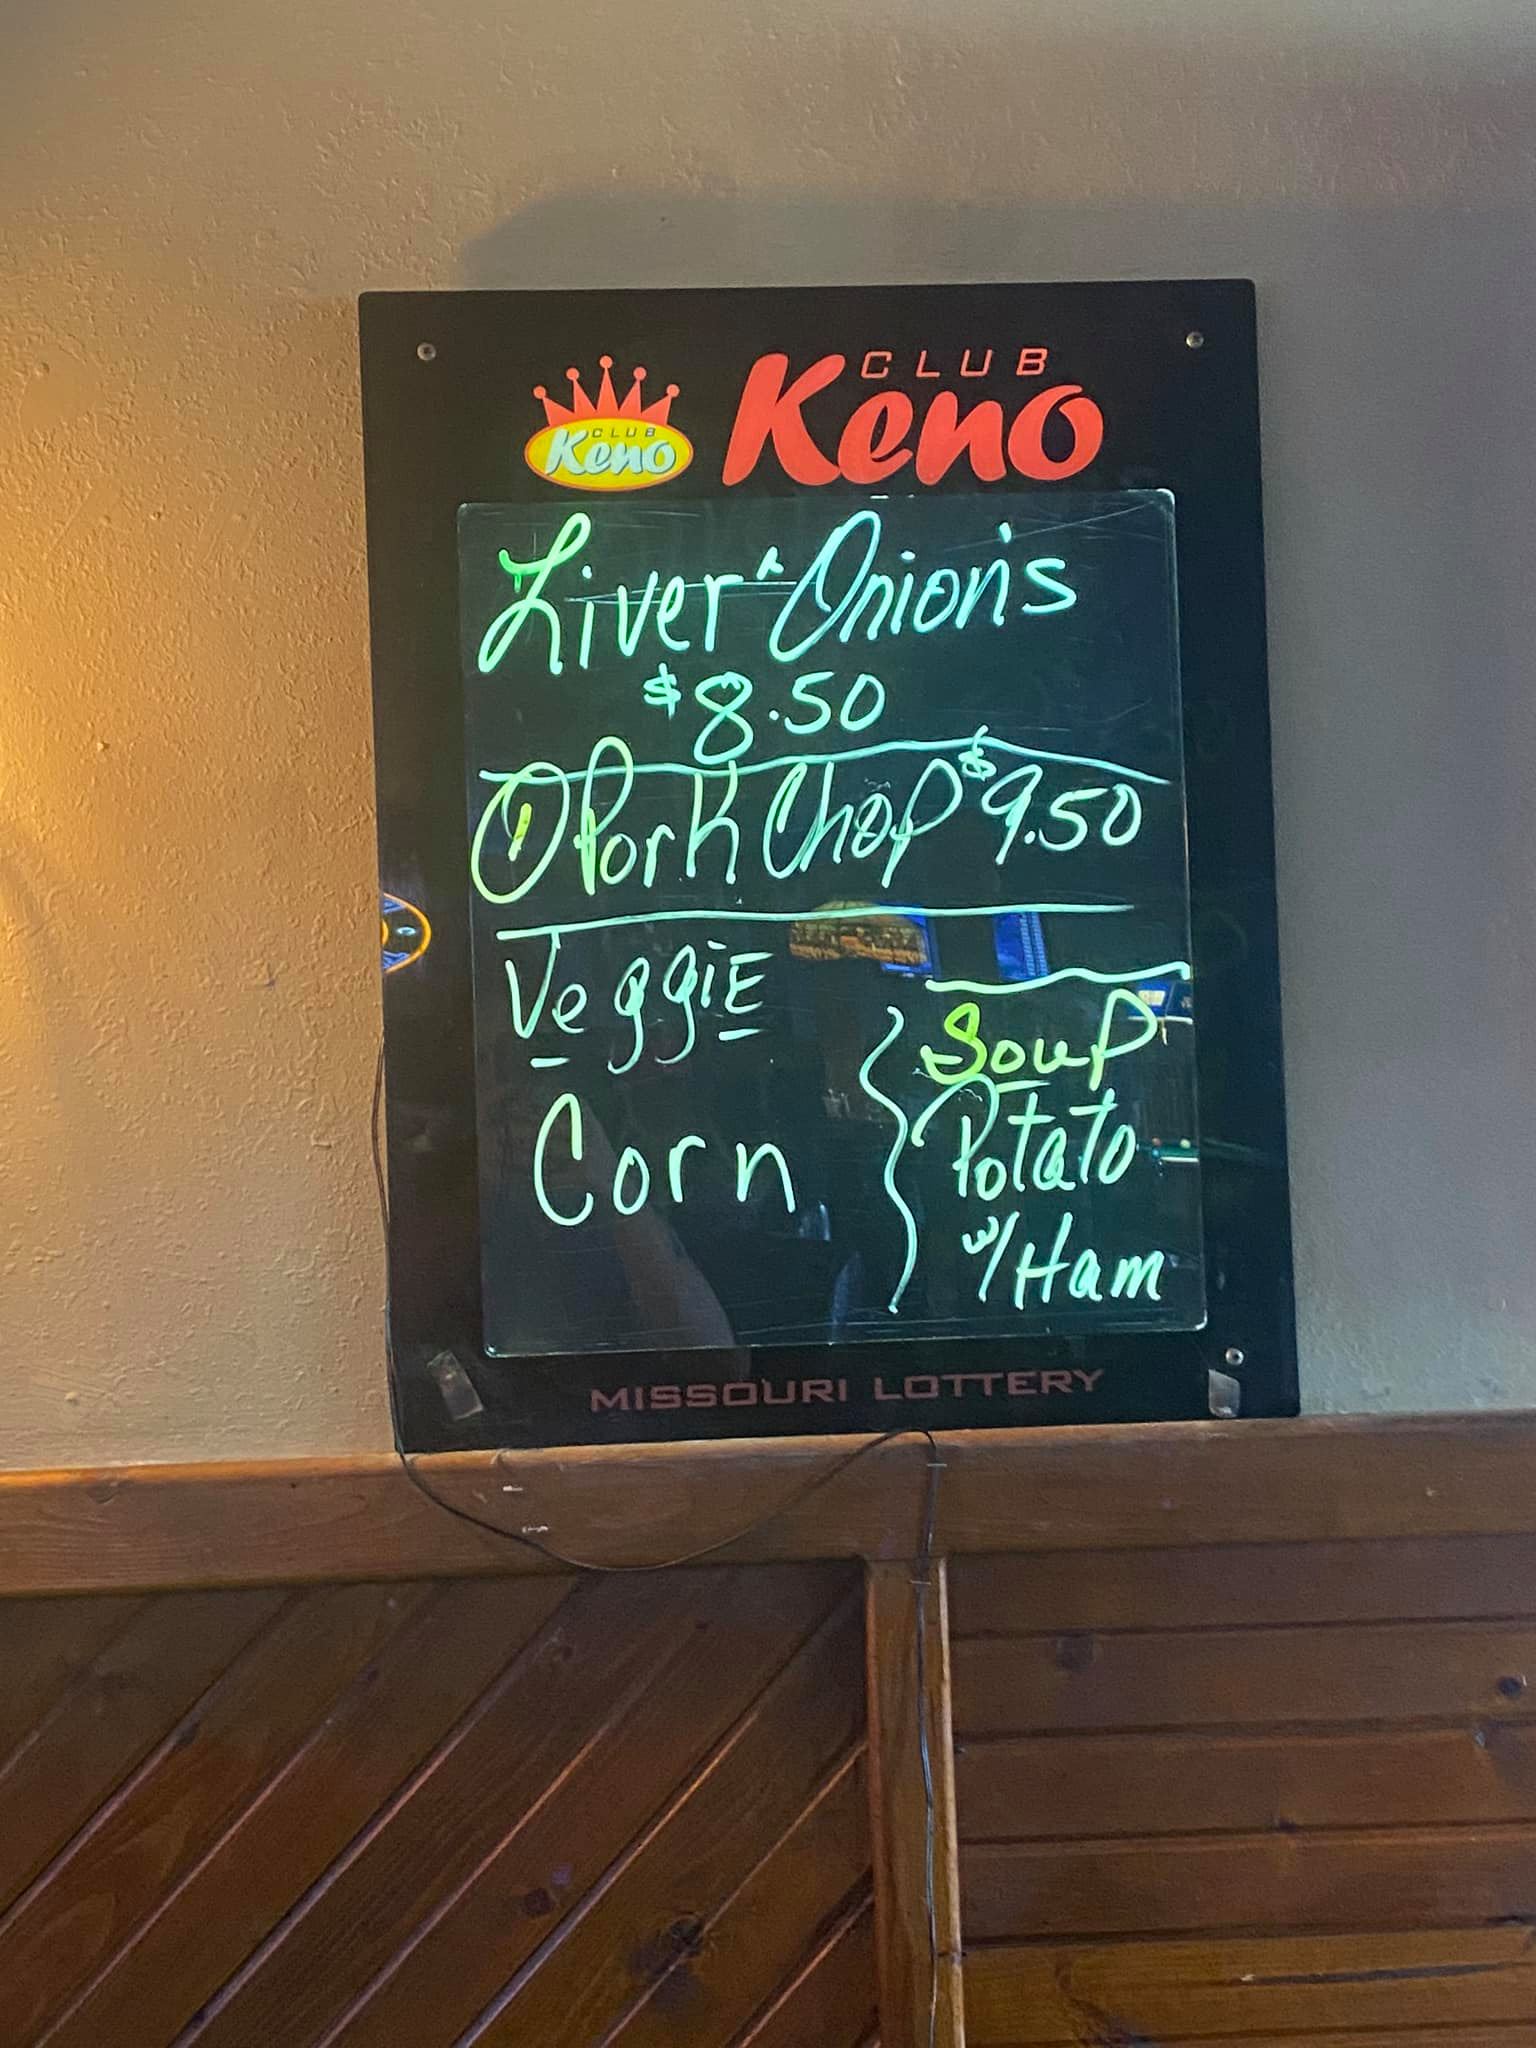 CLUB
Keno
CLUB
Keno
Liver & Onion's
$8.50
① Pork Chop $9.50
VeggiE
Corn
Soup
Potato
w/ Ham
MISSOURI LOTTERY